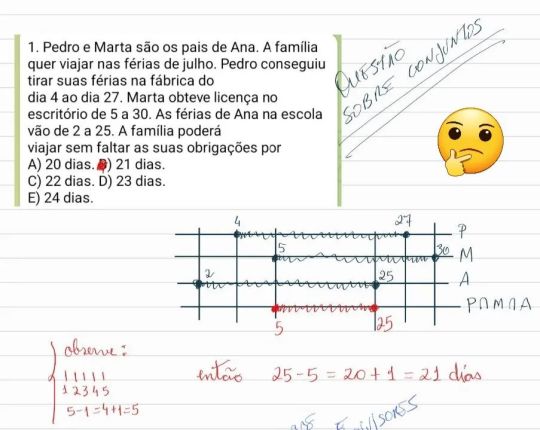 1. Pedro e Marta são os pais de Ana. A família
quer viajar nas férias de julho. Pedro conseguiu
tirar suas férias na fábrica do
dia 4 ao dia 27. Marta obteve licença no
escritório de 5 a 30. As férias de Ana na escola
vão de 2 a 25. A família poderá
viajar sem faltar as suas obrigações por
A) 20 dias. B) 21 dias.
C) 22 dias. D) 23 dias.
E) 24 dias.
QUESTÃO
SOBRE CONJUNTOS
4 27 P
5 30 M
2 25 A
P∩M∩A
5 25
observe:
1 1 1 1 1
1 2 3 4 5
5-1=4+1=5
então 25-5=20+1=21 dias